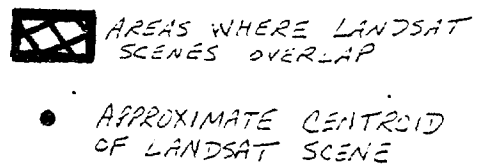 AREAS WHERE LANDSAT
SCENES OVERLAP
APPROXIMATE CENTROID
OF LANDSAT SCENE